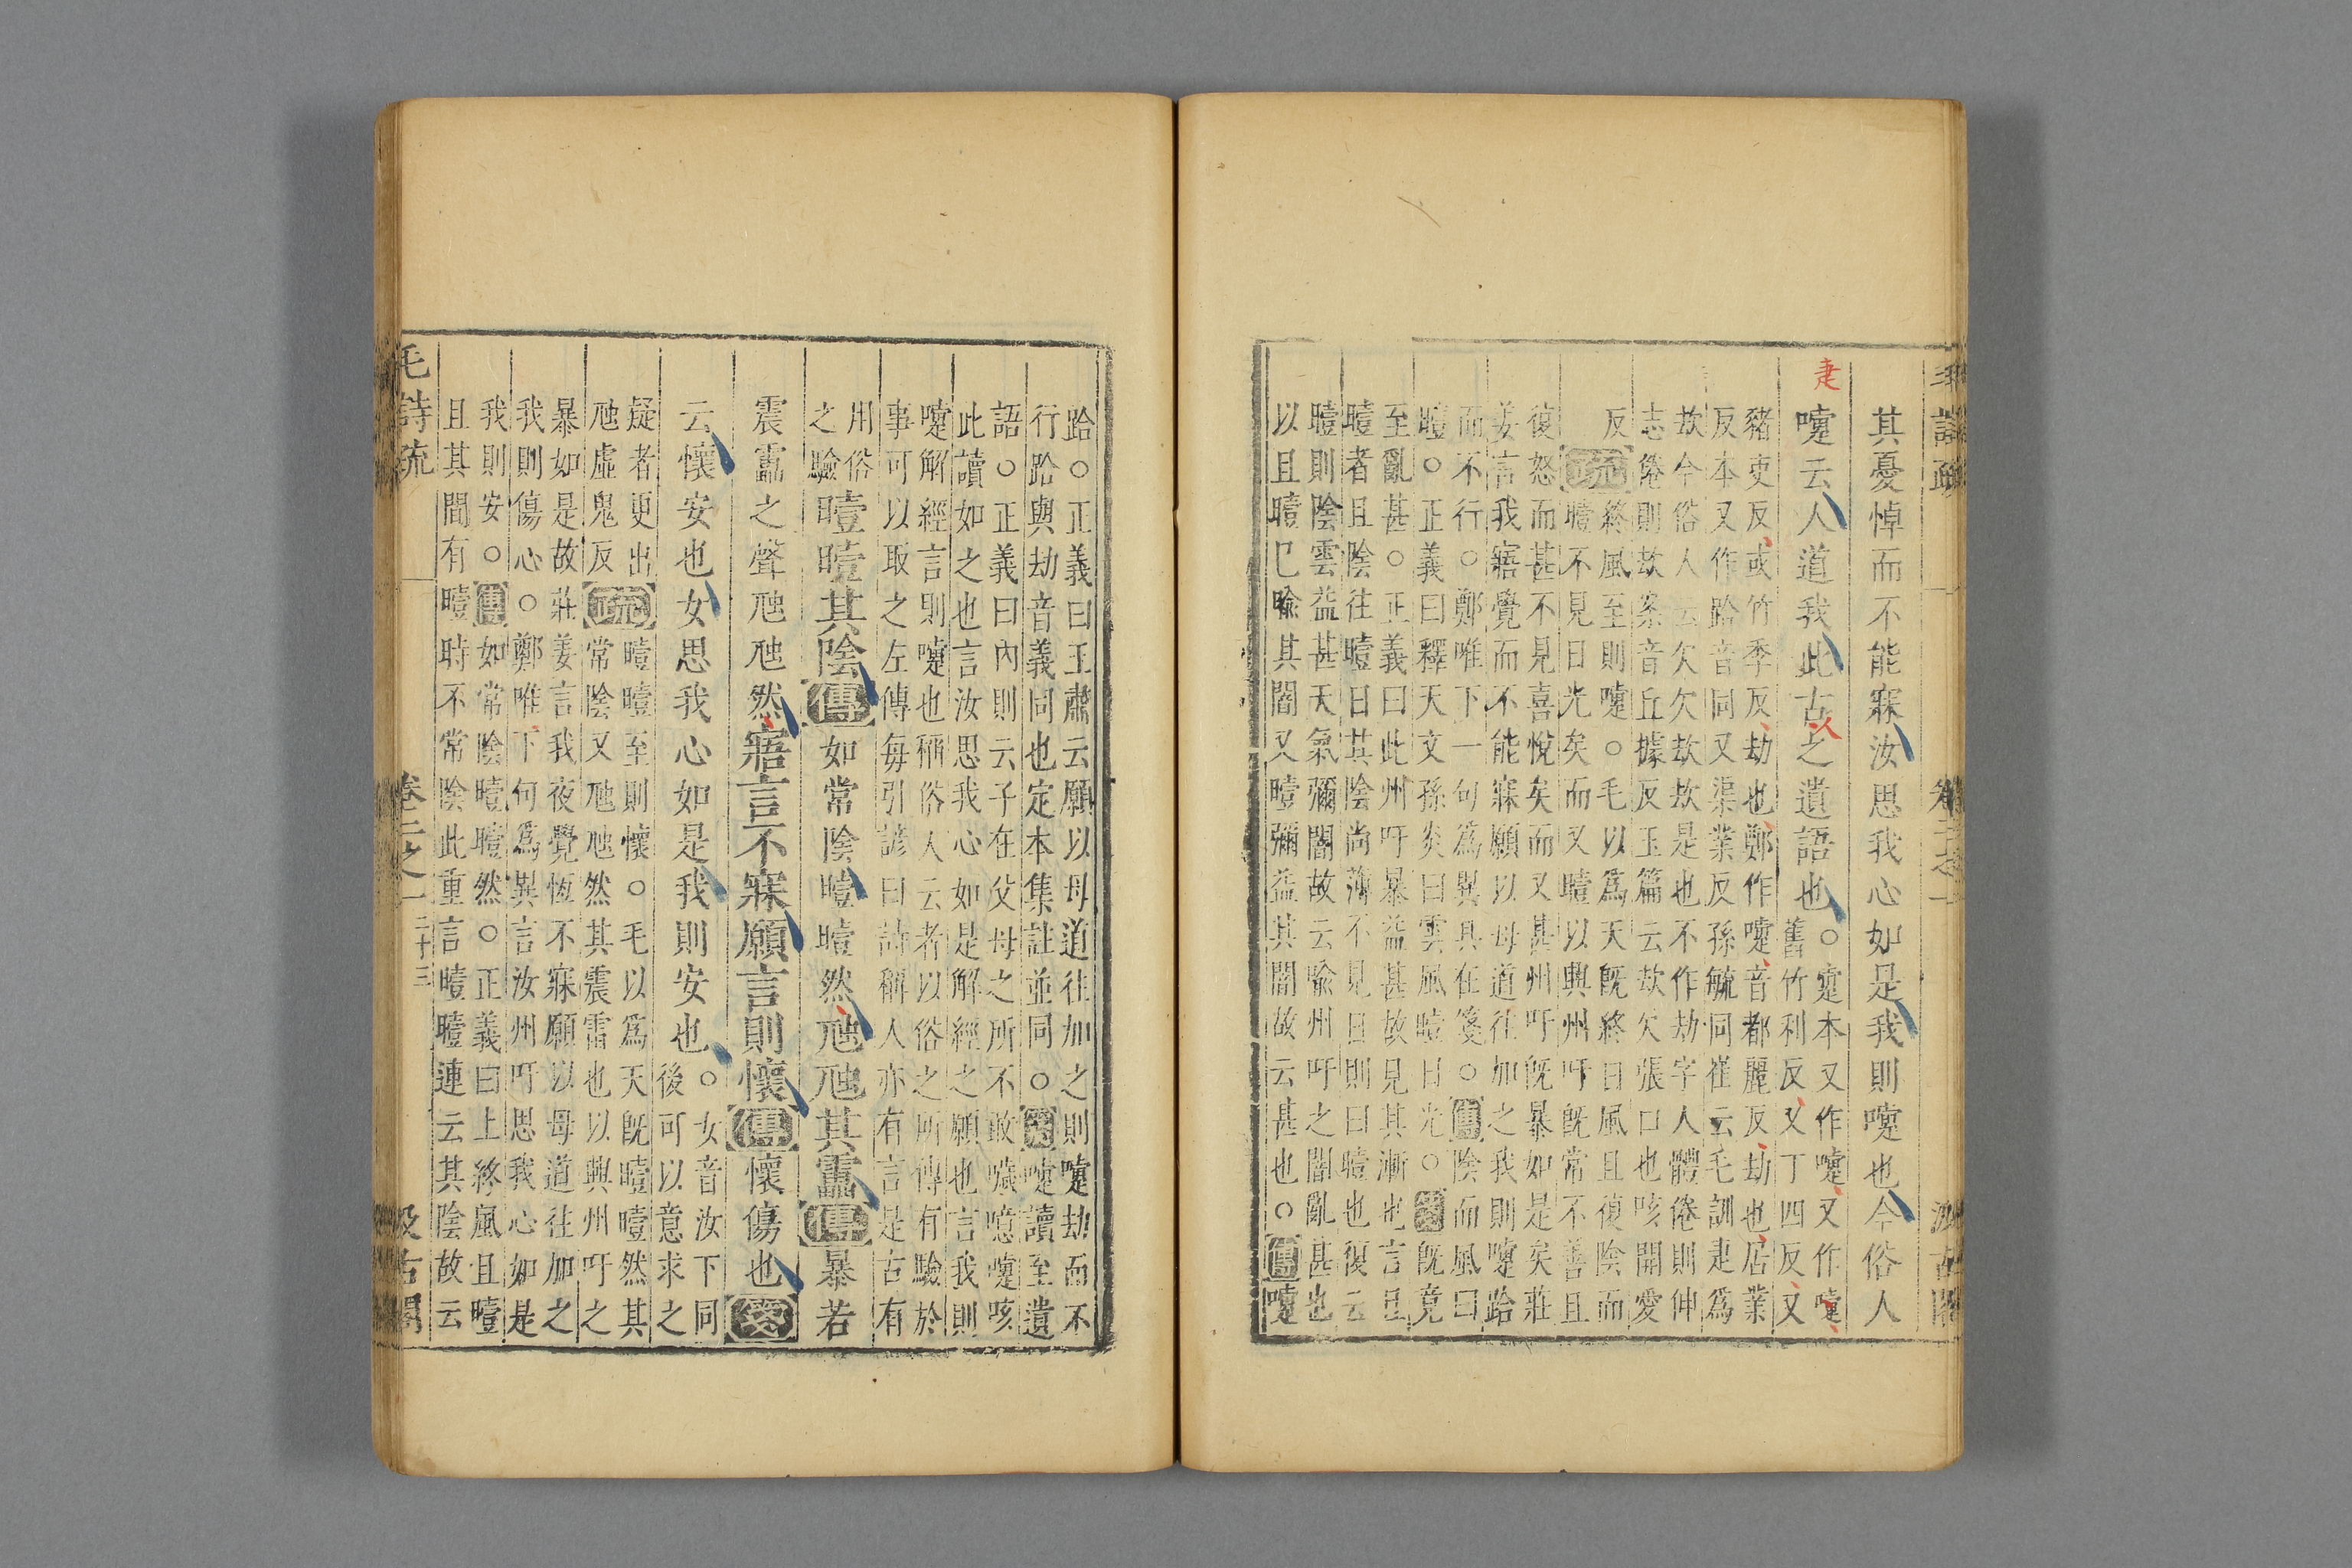 其憂悼而不能寐汝思我心如是我則嚏也今俗人
嚏云人道我此古之遺語也
○疌本又作嚏又作疐
舊竹利反又丁四反又
豬吏反或竹季反劫也鄭作嚏音都麗反劫也居業
反本又作跲音同又渠業反孫毓同崔云毛訓疌爲
㰦今俗人云欠欠㰦㰦是也不作劫字人體倦則伸
志倦則㰦案音丘據反玉篇云㰦欠張口也咳開愛
反
疏
終風至則嚏○毛以爲天既終日風且復陰而
曀不見日光矣而又曀以興州吁既常不善且
復怒而甚不見喜悅矣而又甚州吁既暴如是矣莊
姜言我寤覺而不能寐願以母道往加之我則嚏跲
而不行○鄭唯下一句爲異具在箋○傳陰而風曰
曀○正義曰釋天文孫炎曰雲風曀日光○箋既竟
至亂甚○正義曰此州吁暴益甚故見其漸也言且
曀者且陰往曀日其陰尚薄不見日則曰曀也復云
曀則陰雲益甚天氣彌闇故云喻州吁之闇亂甚也
以且曀巳喻其闇又曀彌益其闇故云甚也○傳嚏
跲○正義曰王肅云願以母道往加之則嚏劫而不
行跲與劫音義同也定本集註並同○箋嚏讀至遺
語○正義曰內則云子在父母之所不敢噦噫嚏咳
此讀如之也言汝思我心如是解經之願也言我則
嚏解經言則嚏也稱俗人云者以俗之所傳有驗於
事可以取之左傳每引諺曰詩稱人亦有言是古有
用俗
之驗
曀曀其陰傳如常陰曀曀然虺虺其靁傳暴若
震靁之聲虺虺然寤言不寐願言則懷傳懷傷也箋
云懷安也女思我心如是我則安也
○女音汝下同
後可以意求之
疑者更出
虺虛鬼反
疏
曀曀至則懷○毛以爲天既曀曀然其
常陰又虺虺然其震雷也以興州吁之
暴如是故莊姜言我夜覺恆不寐願以母道往加之
我則傷心○鄭唯下句爲異言汝州吁思我心如是
我則安○傳如常陰曀曀然○正義曰上終風且曀
且其間有曀時不常陰此重言曀曀連云其陰故云
毛詩疏 卷二之一 二十三 汲古閣